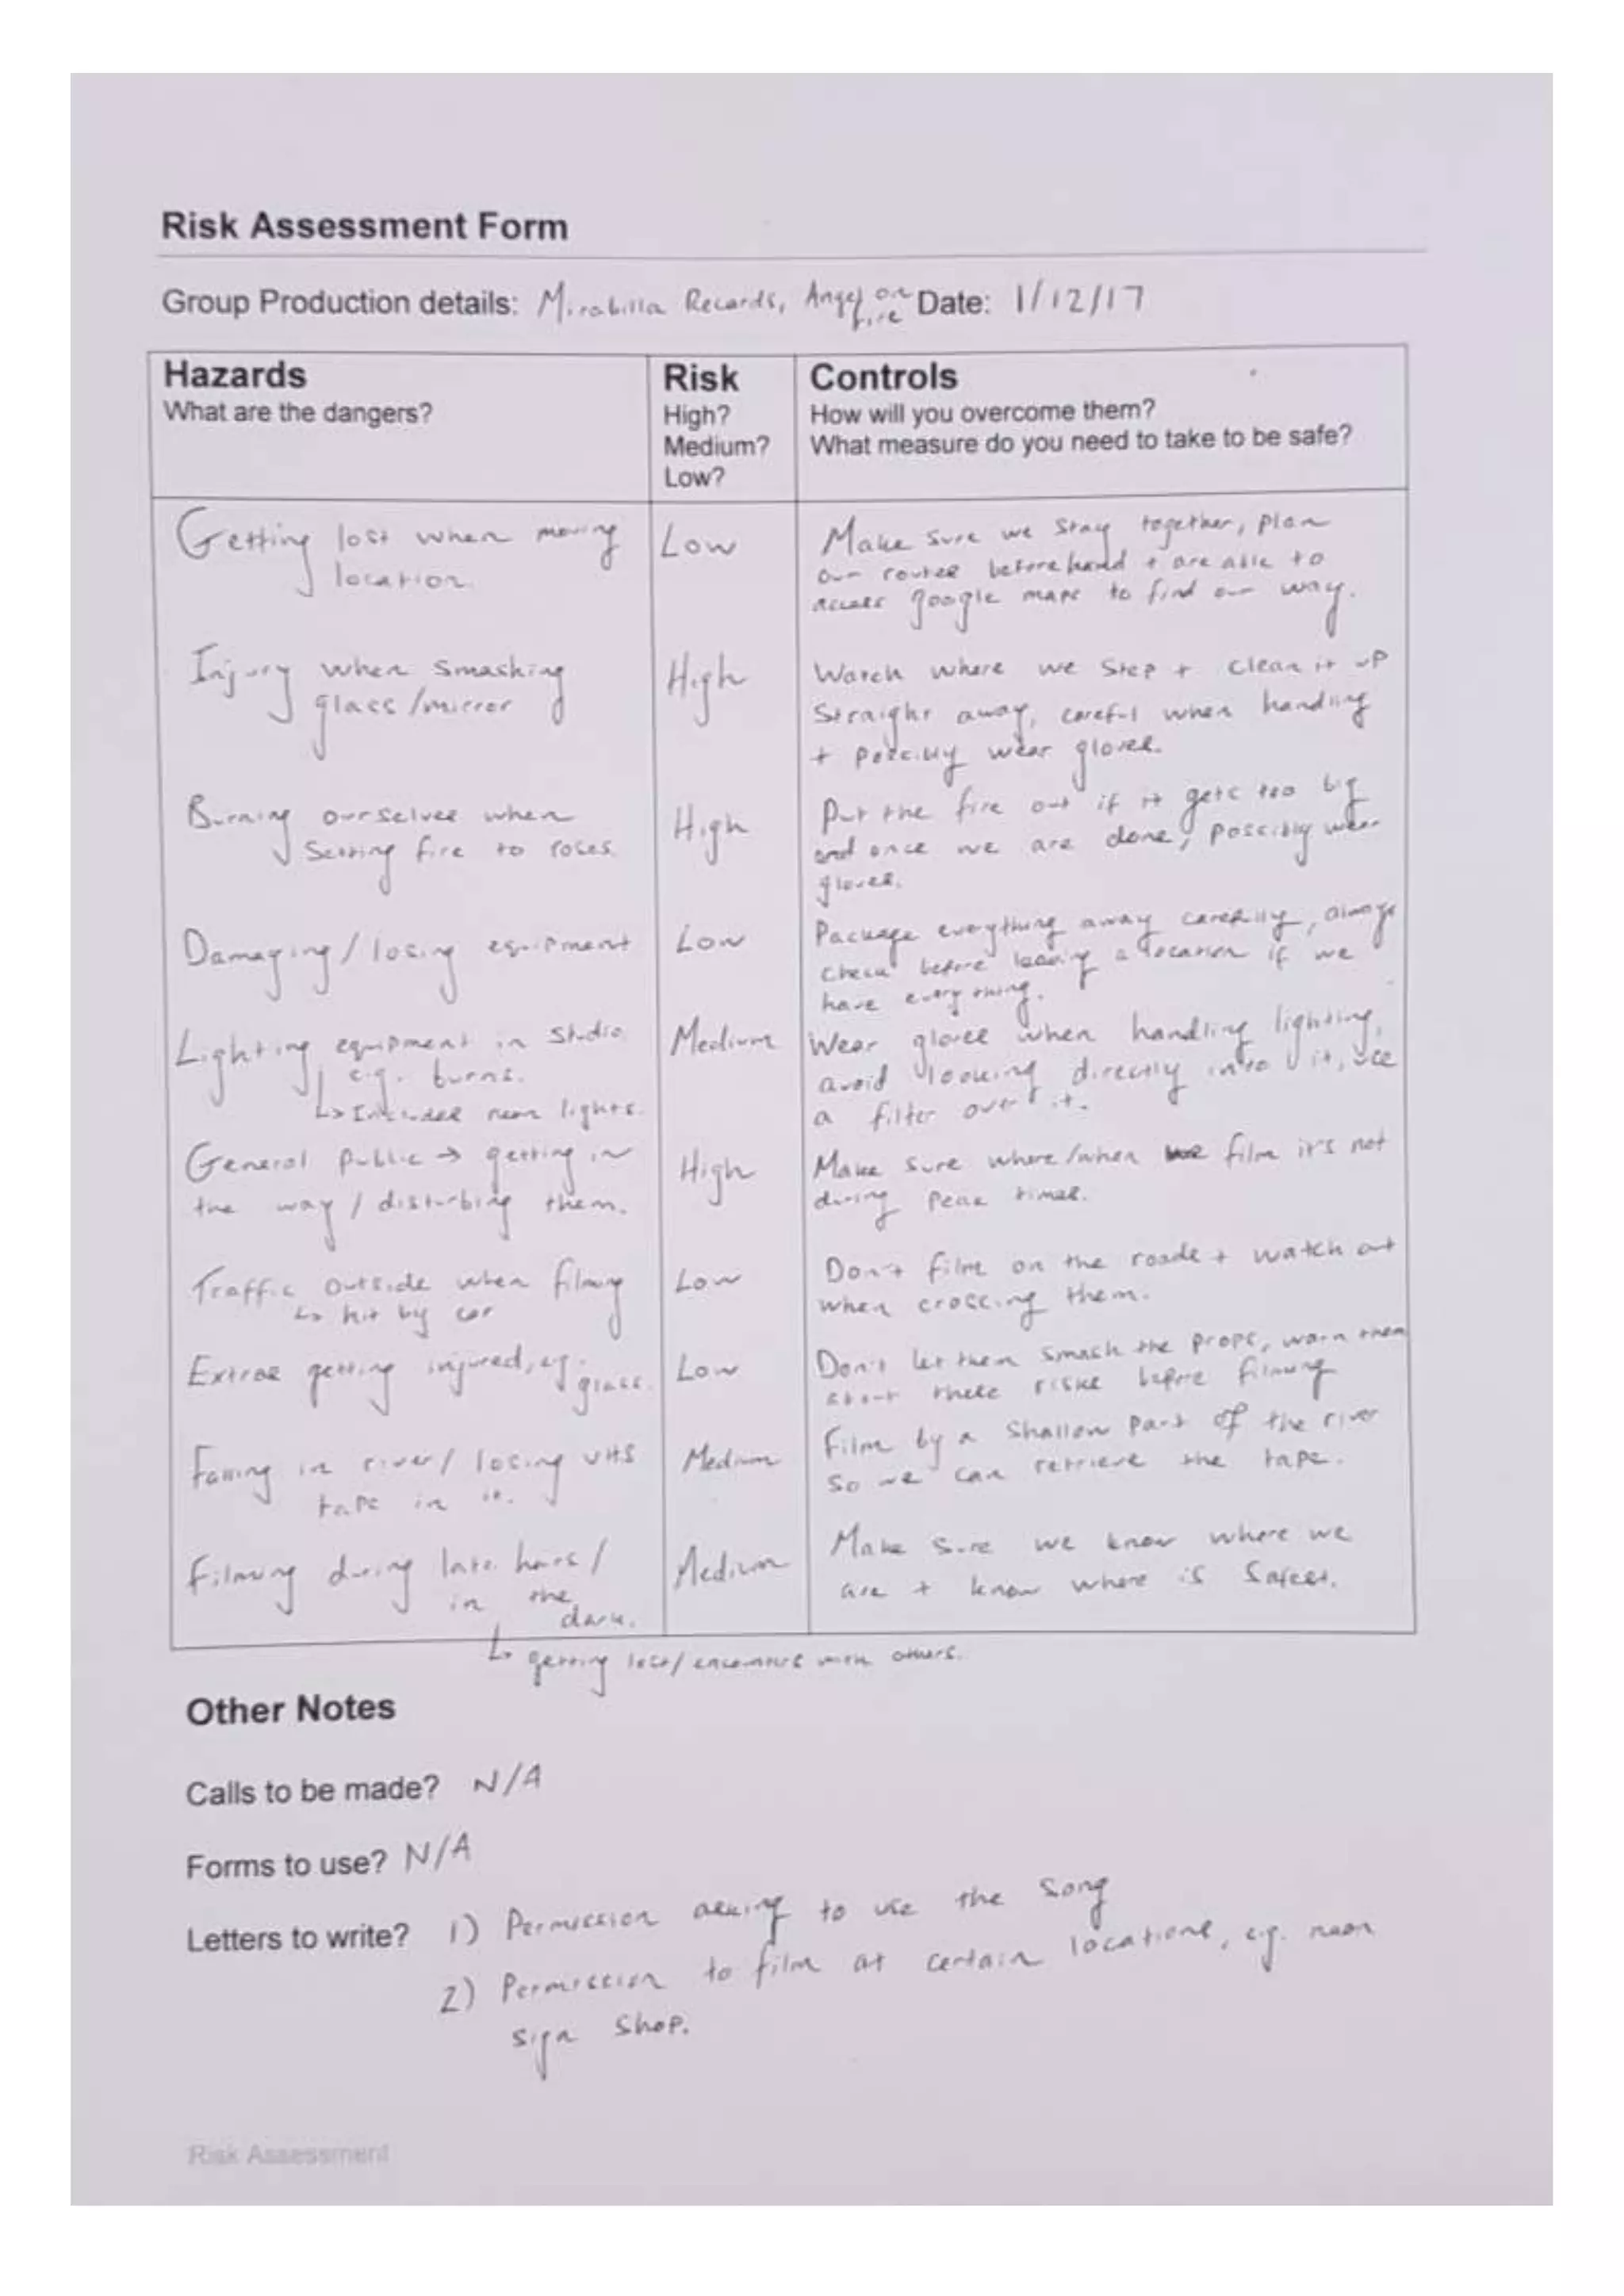 Risk Assessment Form
Group Production details: Mirabilla Records, Angel on fire Date: 1/12/17
Hazards
What are the dangers?
Risk
High?
Medium?
Low?
Controls
How will you overcome them?
What measure do you need to take to be safe?
Getting lost when moving
location.
Low
Make sure we stay together, plan
our routes beforehand + are able to
access google maps to find our way.
Injury when smashing
glass/mirror
High
Watch where we step + clean it up
straight away, careful when handling
+ possibly wear gloves.
Burning ourselves when
setting fire to roses.
High
Put the fire out if it gets too big
and once we are done, possibly wear
gloves.
Damaging/losing equipment
Low
Package everything away carefully, always
check before leaving a location if we
have everything.
Lighting equipment in studio
e.g. burns.
↳ Includes neon lights.
Medium
Wear gloves when handling lighting,
avoid looking directly into it, use
a filter over it.
General public → getting in
the way / disturbing them.
High
Make sure where/when we film it's not
during peak times.
Traffic outside when filming
↳ hit by car
Low
Don't film on the roads + watch out
when crossing them.
Extras getting injured, e.g.
glass.
Low
Don't let them smash the props, warn them
about these risks before filming
Falling in river/ losing VHS
tape in it.
Medium
Film by a shallow part of the river
so we can retrieve the tape.
Filming during late hours/
in the
dark.
↳ getting lost/encounters with others.
Medium
Make sure we know where we
are + know where is safest.
Other Notes
Calls to be made? N/A
Forms to use? N/A
Letters to write? 1) Permission asking to use the song
2) Permission to film at certain locations, e.g. neon
sign shop.
Risk Assessment